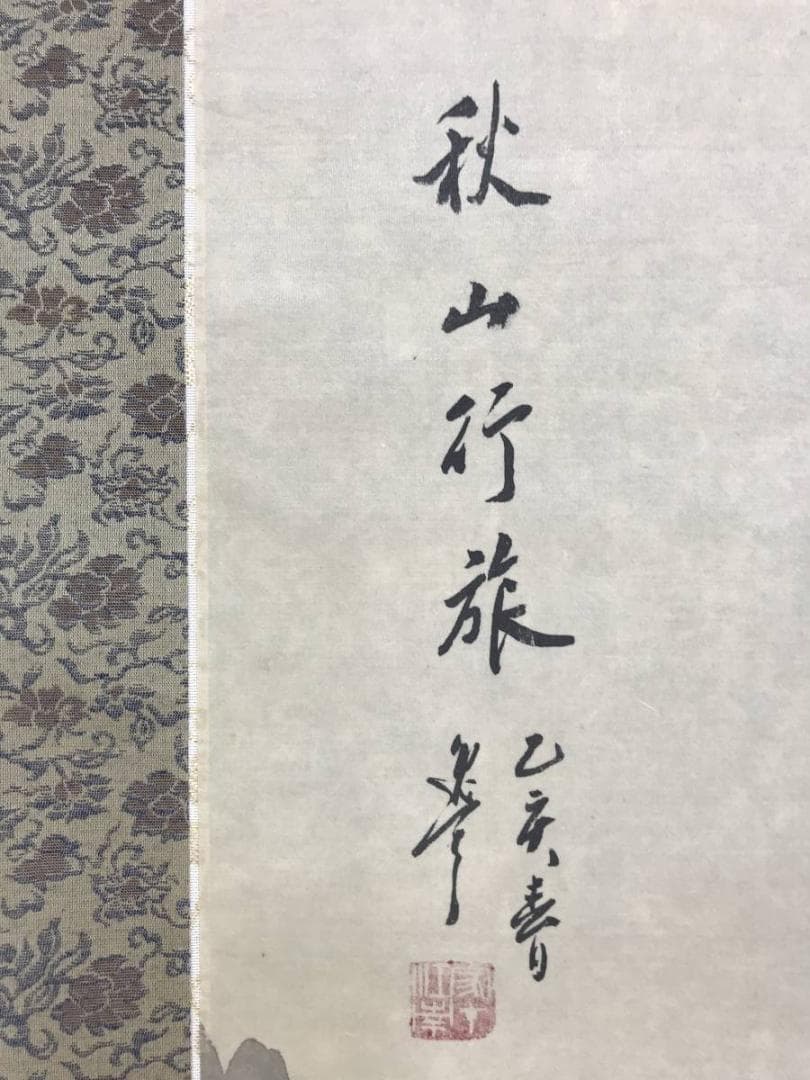 秋山行旅
乙亥春